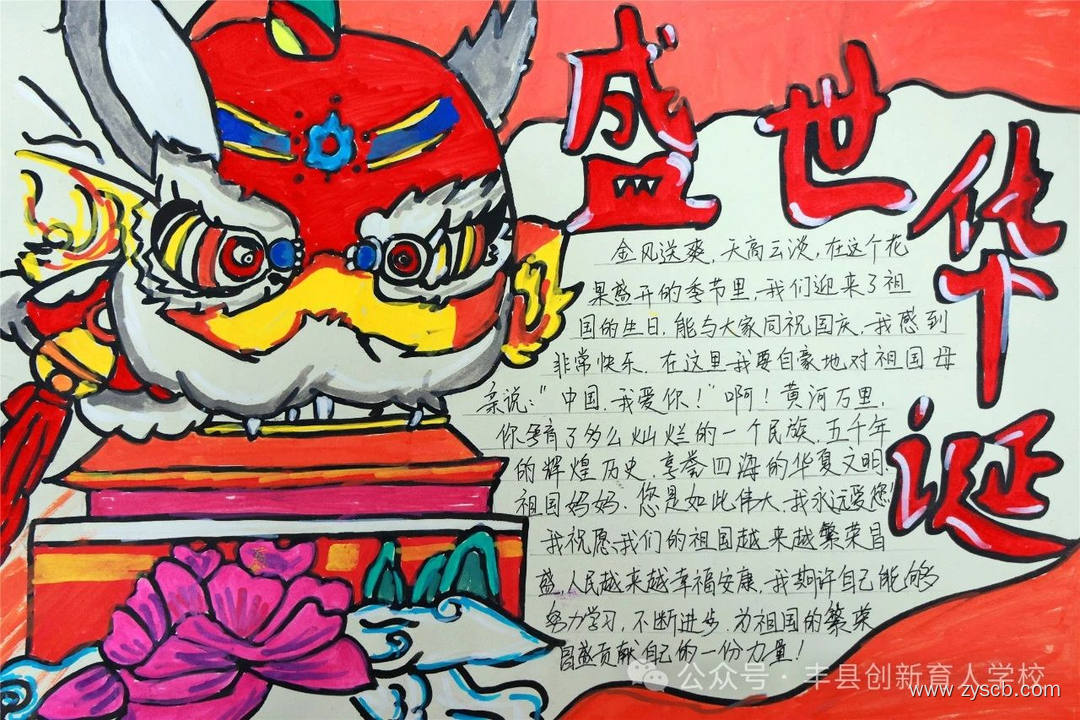 盛世华诞
金风送爽，天高云淡，在这个花
果盛开的季节里，我们迎来了祖
国的生日，能与大家同祝国庆，我感到
非常快乐，在这里我要自豪地对祖国母
亲说：“中国，我爱你！”啊！黄河万里，
你孕育了多么灿烂的一个民族，五千年
的辉煌历史，享誉四海的华夏文明，
祖国妈妈，您是如此伟大，我永远爱您！
我祝愿，我们的祖国越来越繁荣昌
盛，人民越来越幸福安康，我期许自己能够
努力学习，不断进步，为祖国的繁荣
昌盛贡献自己的一份力量！
公众号·丰县创新育人学校
www.zyscb.com